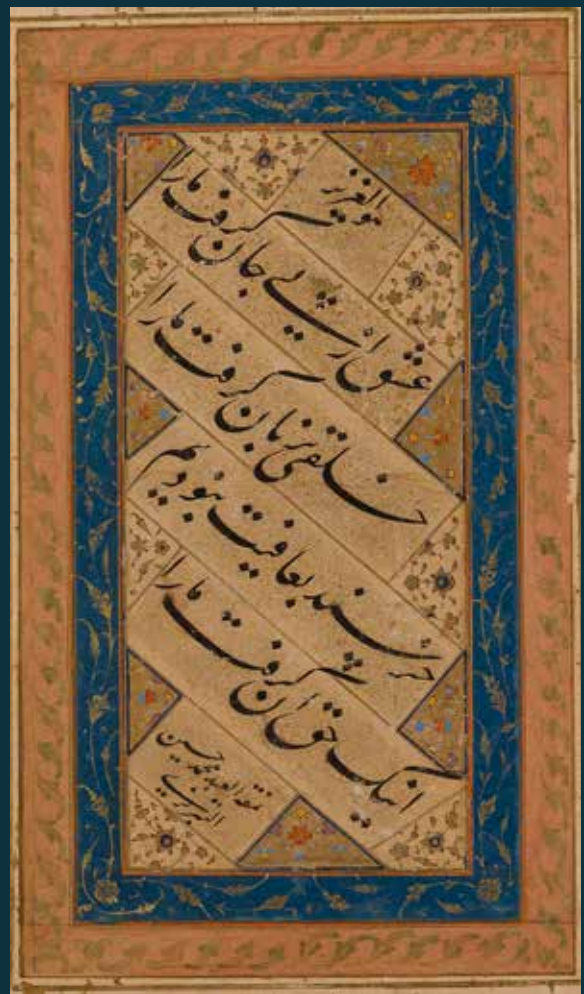 هو العزیز
عشق از پی جان گرفت ما را
خلقی بزبان گرفت ما را
خرسند بعافیت نبودیم
اینک حق آن گرفت ما را
العبد محمد حسین
التبریزی